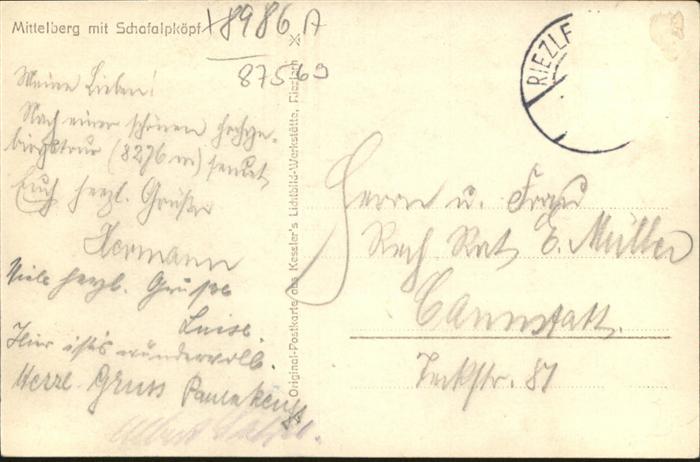 Mittelberg mit Schafalpköpf
18986 A
87569
RIEZLE
Meine Lieben!
Nach einer schönen Hochge-
birgstour (8276 m) sendet
Euch herzl. Grüße
Hermann
Viele herzl. Grüße
Luise.
Hier ist's wundervoll.
Herzl. Gruss
Original-Postkarte aus Kessler's Lichtbild-Werkstätte, Riezlern
Herrn u. Frau
Rech Rat E. Müller
Cannstatt.
Teckstr. 81